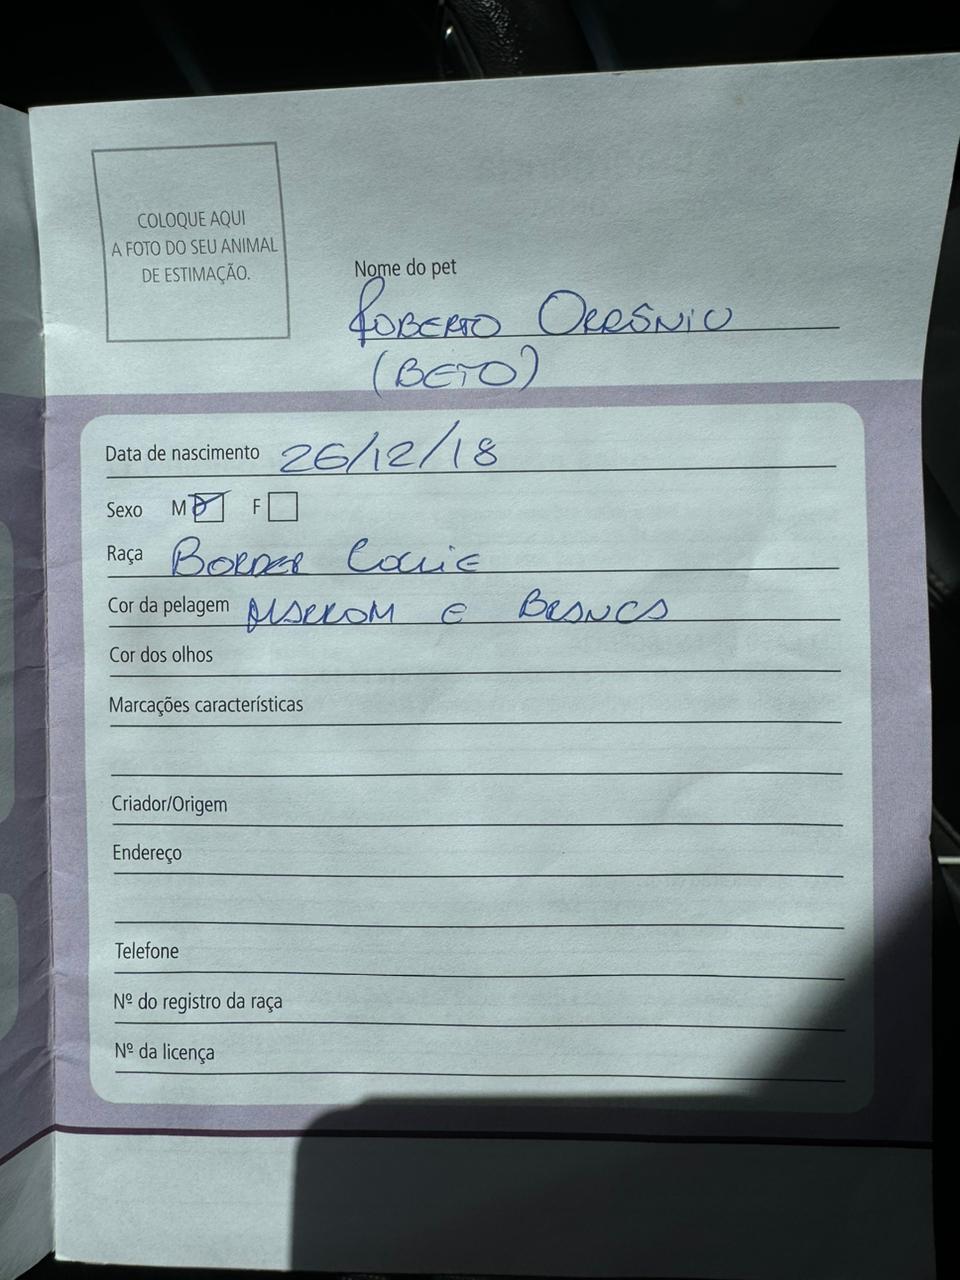 COLOQUE AQUI
A FOTO DO SEU ANIMAL
DE ESTIMAÇÃO.
Nome do pet
ROBERTO ORRÔNIO
(BETO)
Data de nascimento 26/12/18
Sexo M F
Raça BORDER COLLIE
Cor da pelagem MARROM E BRANCO
Cor dos olhos
Marcações características
Criador/Origem
Endereço
Telefone
Nº do registro da raça
Nº da licença